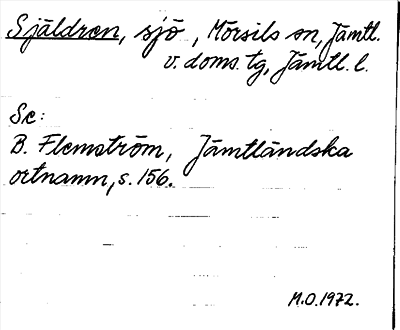 Själdren, sjö, Mörsils sn, Jämtl.
v. doms. tg, Jämtl. l.
Se:
B. Flemström, Jämtländska
ortnamn, s. 156.
M.O. 1972.